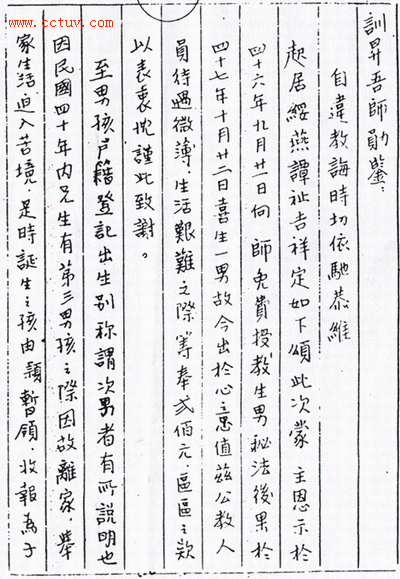 www.cctuv.com
訓昇吾師勛鑒：
自違教誨時切依馳恭維
起居綏燕譚祉吉祥定如下頌此次蒙　主恩示於
四十六年九月廿一日向　師免費授教生男秘法後果於
四十七年十月廿二日喜生一男故今出於心意值茲公教人
員待遇微薄．生活艱難之際籌奉弍佰元．區區之款
以表衷忱謹此致謝。
至男孩戶籍登記出生別称謂次男者有所說明也
因民國四十年內兄生有第三男孩之際因故離家．舉
家生活迫入苦境．是時誕生之孩由　暫領．收報為子